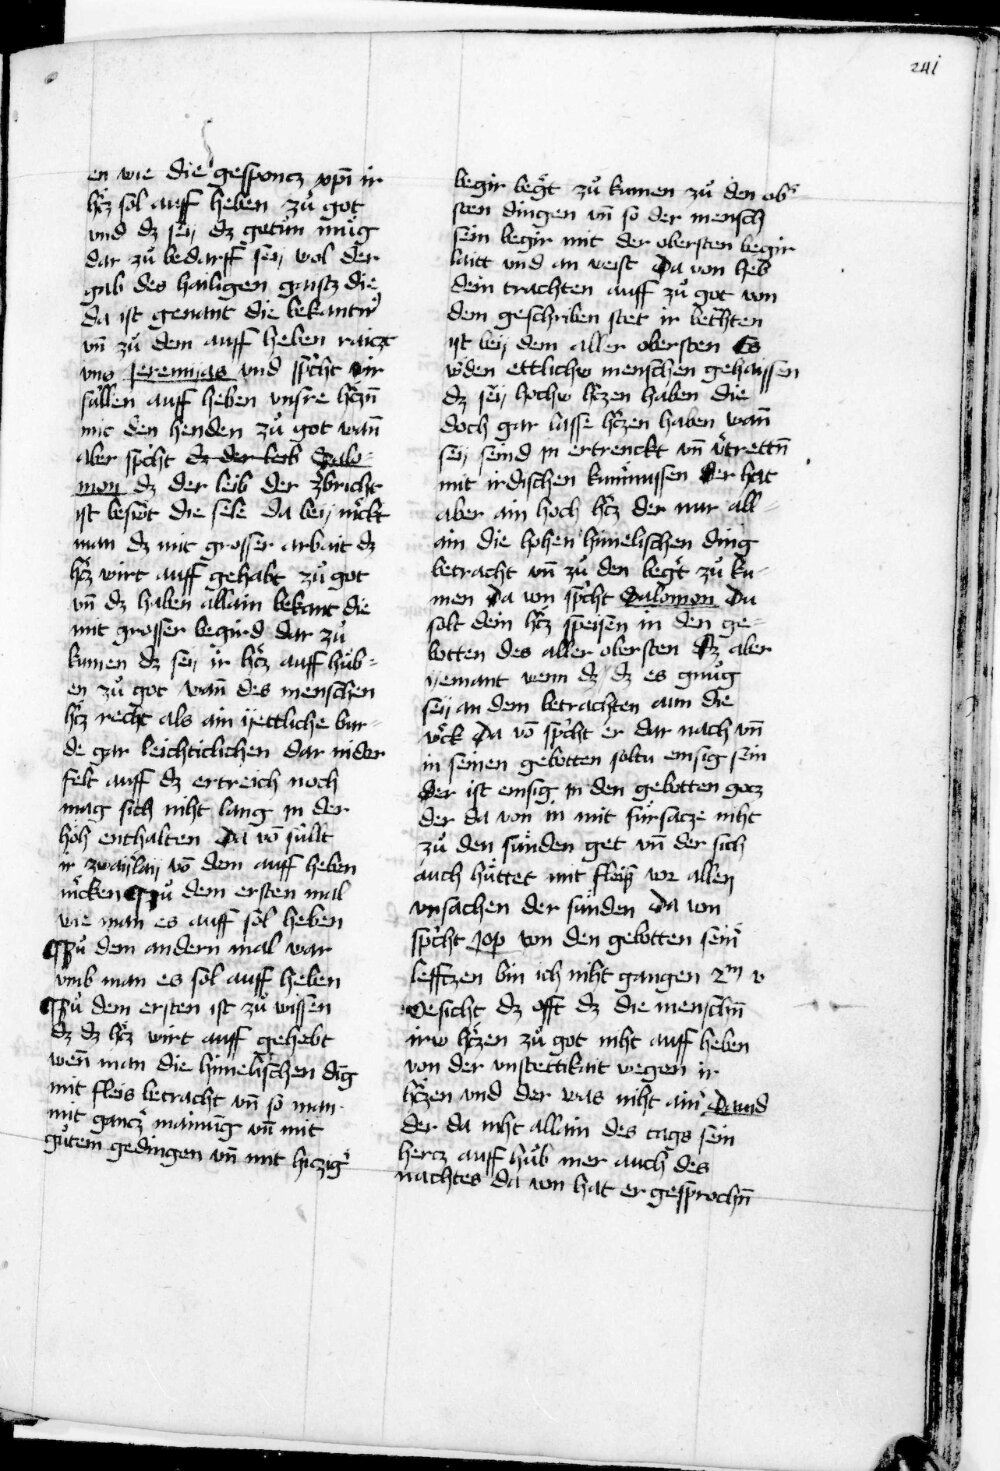 241
en wie die gesponcz xp̄i ir
hˀcz sol auff heben zuͦ got
vnd dz seÿ dz getuͦn muͤg
dar zuͦ bedarff seÿ wol der
gab des hailigen gaistz die
da ist genant die bekantnˀ
vn̄ zuͦ dem auff heben raiczt
vns Jeremÿas vnd spˀcht wir
süllen auff heben vnsre hˀczn̄
mit den henden zuͦ got wan̄
aber spˀcht dz der leib Salo-
mon dz der leib der zˀbricht
ist beswˀt die sele da beÿ mˀckt
man dz mit grosser arbait dz
hˀcz wirt auff gehabt zuͦ got
vn̄ dz haben allain bekant die
mit grosser begird dar zuͦ
kumen dz seÿ ir hˀcz auff hüb-
en zuͦ got wan̄ des menschen
hˀcz recht als ain ÿettliche bur-
de gar leichticlichen dar nider
felt auff dz ertreich noch
mag sich niht lang in der
höh enthalten Da vō süllt
ir zwaÿlaÿ vō dem auff heben
mˀcken Zuͦ dem ersten mal
wie man es auff sol heben
Zuͦ dem andern mal war
vmb man es sol auff heben
Zuͦ dem ersten ist zuͦ wissen
dz dz hˀcz wirt auff gehebt
wen̄ man die himelischen dīg
mit fleis betracht vn̄ so man
mit ganczˀ mainūg vn̄ mit
guͦtem gedingen vn̄ mit hiczigˀ
begir begˀt zuͦ kumen zuͦ den obˀ
sten dingen vn̄ so der mensch
sein begir mit der obersten begir
laitt vnd an weist Da von heb
dein trachten auff zuͦ got von
dem geschriben stet ir betrhten
ist beÿ dem aller obersten Es
wˀden ettliche menschen gehaissen
dz seÿ hoche hˀczen haben die
doch gar lasse hˀczen haben wan̄
seÿ seind in ertrenckt vn̄ vˀtrettn̄
mit irdischen kumͤnussen Der hat
aber ain hoch hˀcz der nur all-
ain die hohen himelischen ding
betracht vn̄ zuͦ den begˀt zuͦ ku-
men Da von spˀcht Salomon Du
solt dein hˀcz speisen in den ge-
botten des aller obersten Dz aber
ÿemant wenn dz dz es gnuͦg
seÿ an dem betrachten aun die
wˀck Da vō spˀcht er dar nach vn̄
in seinen gebotten soltu emsig sein
Der ist emsig in den gebotten gocz
der da von in mit fürsacze niht
zuͦ den sünden get vn̄ der sich
auch hüttet mit fleiß vor allen
vrsachen der sünden Da von
spˀcht Jop von den gebotten seinˀ
lefftzen bin ich niht gangen 2m v
Gesicht dz offt dz die menschn̄
ire hˀczen zuͦ got niht auff heben
von der vnstettikait wegen ir
hˀczen vnd der was niht ainˀ Dauid
der da niht allain des tags sein
hercz auff huͦb mer auch des
nachtes da von hat er gesprochn̄